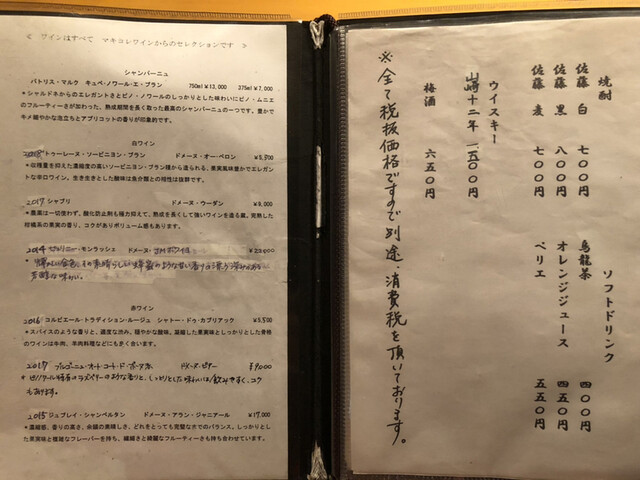 ≪ ワインはすべて マキコレワインからのセレクションです ≫
シャンパーニュ
パトリス・マルク キュベ・ノワール・エ・ブラン 750ml ¥13,000 375ml ¥7,000
＊シャルドネからのエレガントさとピノ・ノワールのしっかりとした味わいにピノ・ムニエ
のフルーティーさが加わった、熟成期間を長く取った最高のシャンパーニュの一つです。豊かで
キメ細やかな泡立ちとアプリコットの香りが印象的です。
白ワイン
2018 トゥーレーヌ・ソービニヨン・ブラン ドメーヌ・オー・ペロン ¥5,500
＊収穫量を抑えた濃縮度の高いソービニヨン・ブラン種から造られる、果実風味豊かでエレガント
な辛口ワイン。生き生きとした酸味は魚介類との相性は抜群です。
2017 シャブリ ドメーヌ・ウーダン ¥9,000
＊農薬は一切使わず、酸化防止剤も極力抑えて、熟成を長くして強いワインを造る蔵。完熟した
柑橘系の果実の香り、コクがありボリューム感もあります。
2014 ピュリニー・モンラッシェ ドメーヌ・
芳醇な味わい。
赤ワイン
2016 コルビエール・トラディション・ルージュ シャトー・ドゥ・カブリアック ¥5,500
＊スパイスのような香りと、適度な渋み、穏やかな酸味、凝縮した果実味としっかりとした骨格
のワインは牛肉、羊肉料理などにも良く合います。
2017 ブルゴーニュ・オート・コート・ド・ボーヌ ドメーヌ・ビター ¥9000
＊ピノノワール特有のラズベリーのような香りと、しっとりとした味わいは飲みやすく、コク
もあります。
2015 ジュブレイ・シャンベルタン ドメーヌ・アラン・ジャニアール ¥17,000
＊濃縮感、香りの高さ、余韻の美味しさ、どれをとっても完璧なまでのバランス。しっかりとし
た果実味と複雑なフレーバーを持ち、繊細さと綺麗なフルーティーさも持ち合わせています。
焼酎
佐藤 白 七〇〇円
佐藤 黒 八〇〇円
佐藤 麦 七〇〇円
ウイスキー
山崎十二年 一、五〇〇円
梅酒 六五〇円
ソフトドリンク
烏龍茶 四〇〇円
オレンジジュース 四五〇円
ペリエ 五五〇円
※全て税抜価格ですので別途、消費税を頂いております。